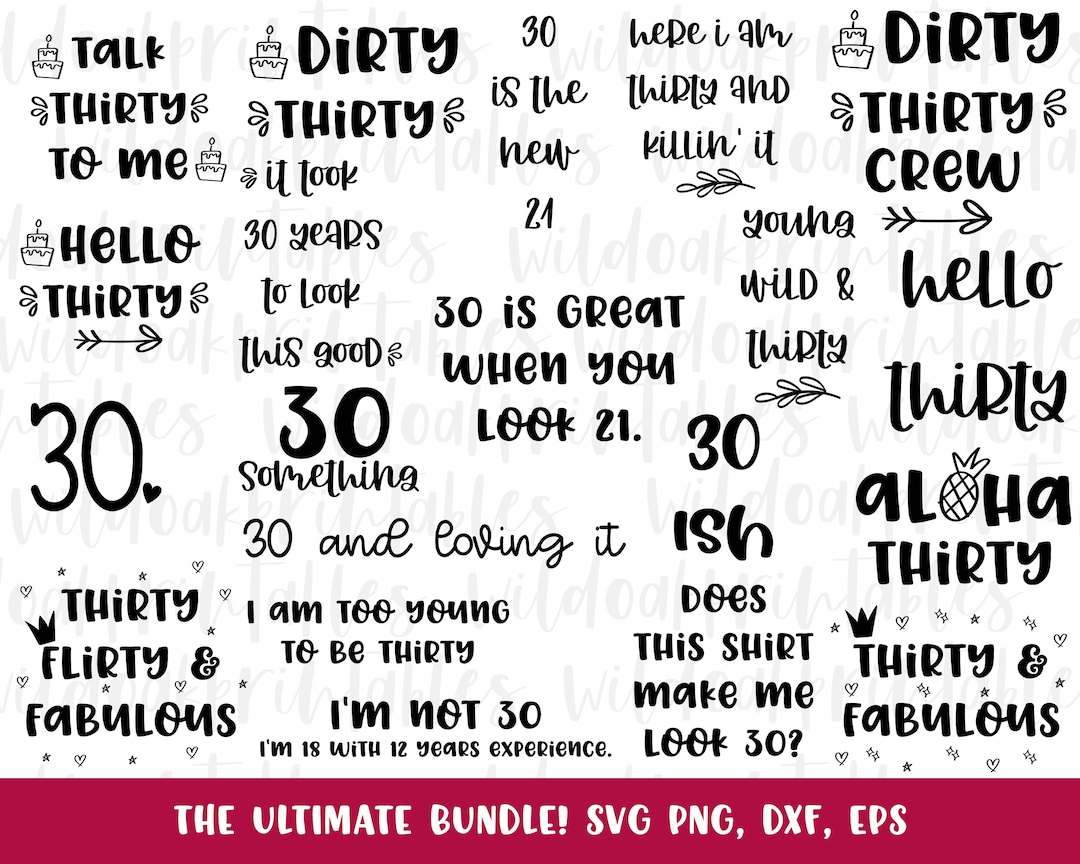 TALK
THIRTY
TO ME
DIRTY
THIRTY
it took
30 years
to look
this good
30
is the
new
21
here i am
thirty and
killin' it
DIRTY
THIRTY
CREW
HELLO
THIRTY
young
wild &
thirty
hello
thirty
30 is GREAT
WHEN YOU
LOOK 21.
30
30
something
30
ISH
ALOHA
THIRTY
30 and loving it
THIRTY
FLIRTY &
FABULOUS
I AM TOO YOUNG
TO BE THIRTY
I'M NOT 30
I'M 18 WITH 12 YEARS EXPERIENCE.
DOES
THIS SHIRT
MAKE ME
LOOK 30?
THIRTY &
FABULOUS
THE ULTIMATE BUNDLE! SVG PNG, DXF, EPS
wildoakprintables